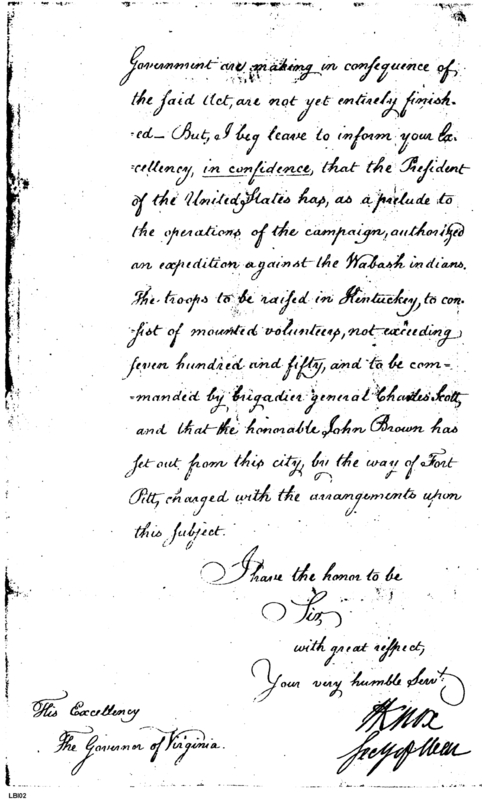 Government are making in consequence of
the said Act, are not yet entirely finish-
-ed — But, I beg leave to inform your Ex-
-cellency, in confidence, that the President
of the United States has, as a prelude to
the operations of the campaign, authorized
an expedition against the Wabash indians.
The troops to be raised in Kentuckey, to con-
-sist of mounted volunteers, not exceeding
seven hundred and fifty, and to be com-
-manded by brigadier general Charles Scott,
and that the honorable John Brown has
set out from this city, by the way of Fort
Pitt, charged with the arrangements upon
this subject.
I have the honor to be
Sir,
with great respect,
Your very humble Servt.
HKnox
Secy of War
His Excellency
The Governor of Virginia.
LBI02